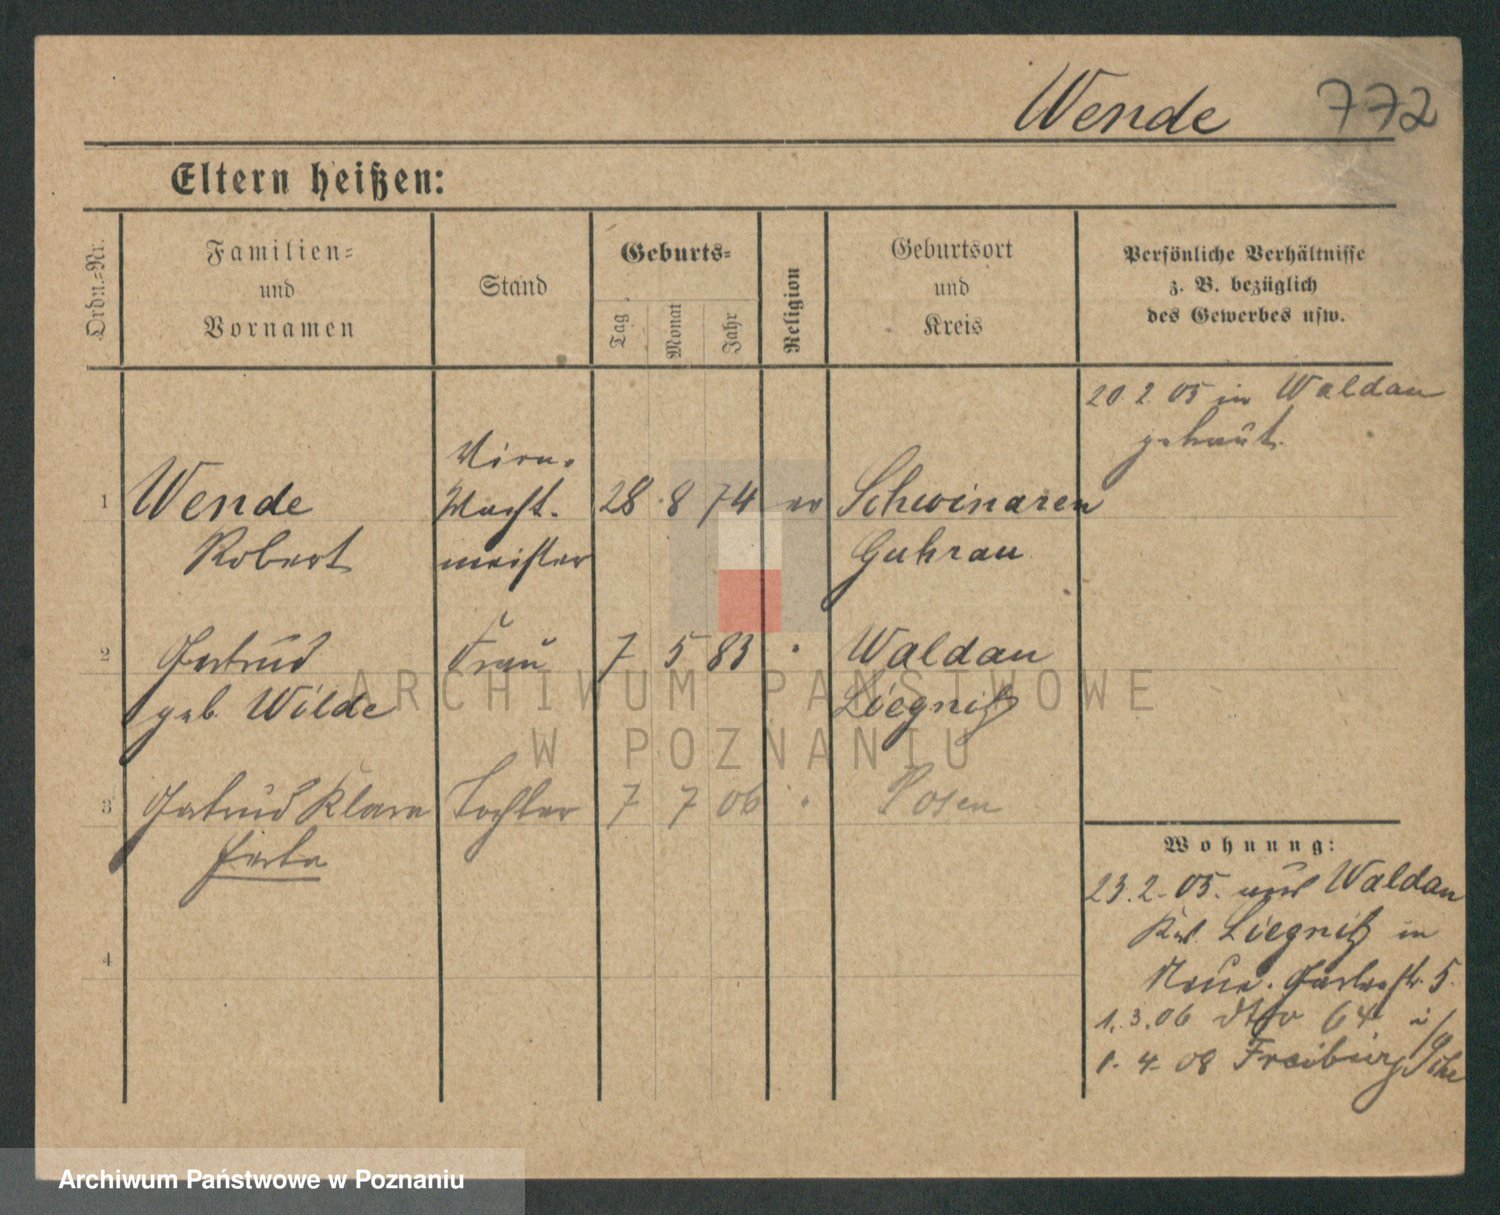 Wende 772
Eltern heißen:
Ordn.=Nr.
Familien=
und
Vornamen
Stand
Geburts=
Tag
Monat
Jahr
Religion
Geburtsort
und
Kreis
Persönliche Verhältnisse
z. B. bezüglich
des Gewerbes usw.
20 2 05 in Waldau
getraut.
1 Wende
Robert
Wacht-
meister
28 8 74 ev
Schwinaren
Guhrau
2 Gertrud
geb. Wilde
Frau
7 5 83 "
Waldau
Liegnitz
3 Gertrud Klara
Herta
Tochter
7 7 06 "
Posen
4
Wohnung:
23. 2. 05. aus Waldau
Krs. Liegnitz in
Neue. Gartenstr. 5.
1. 3. 06 dto 64
1. 4. 08 Freiburg
ARCHIWUM PAŃSTWOWE
W POZNANIU
Archiwum Państwowe w Poznaniu